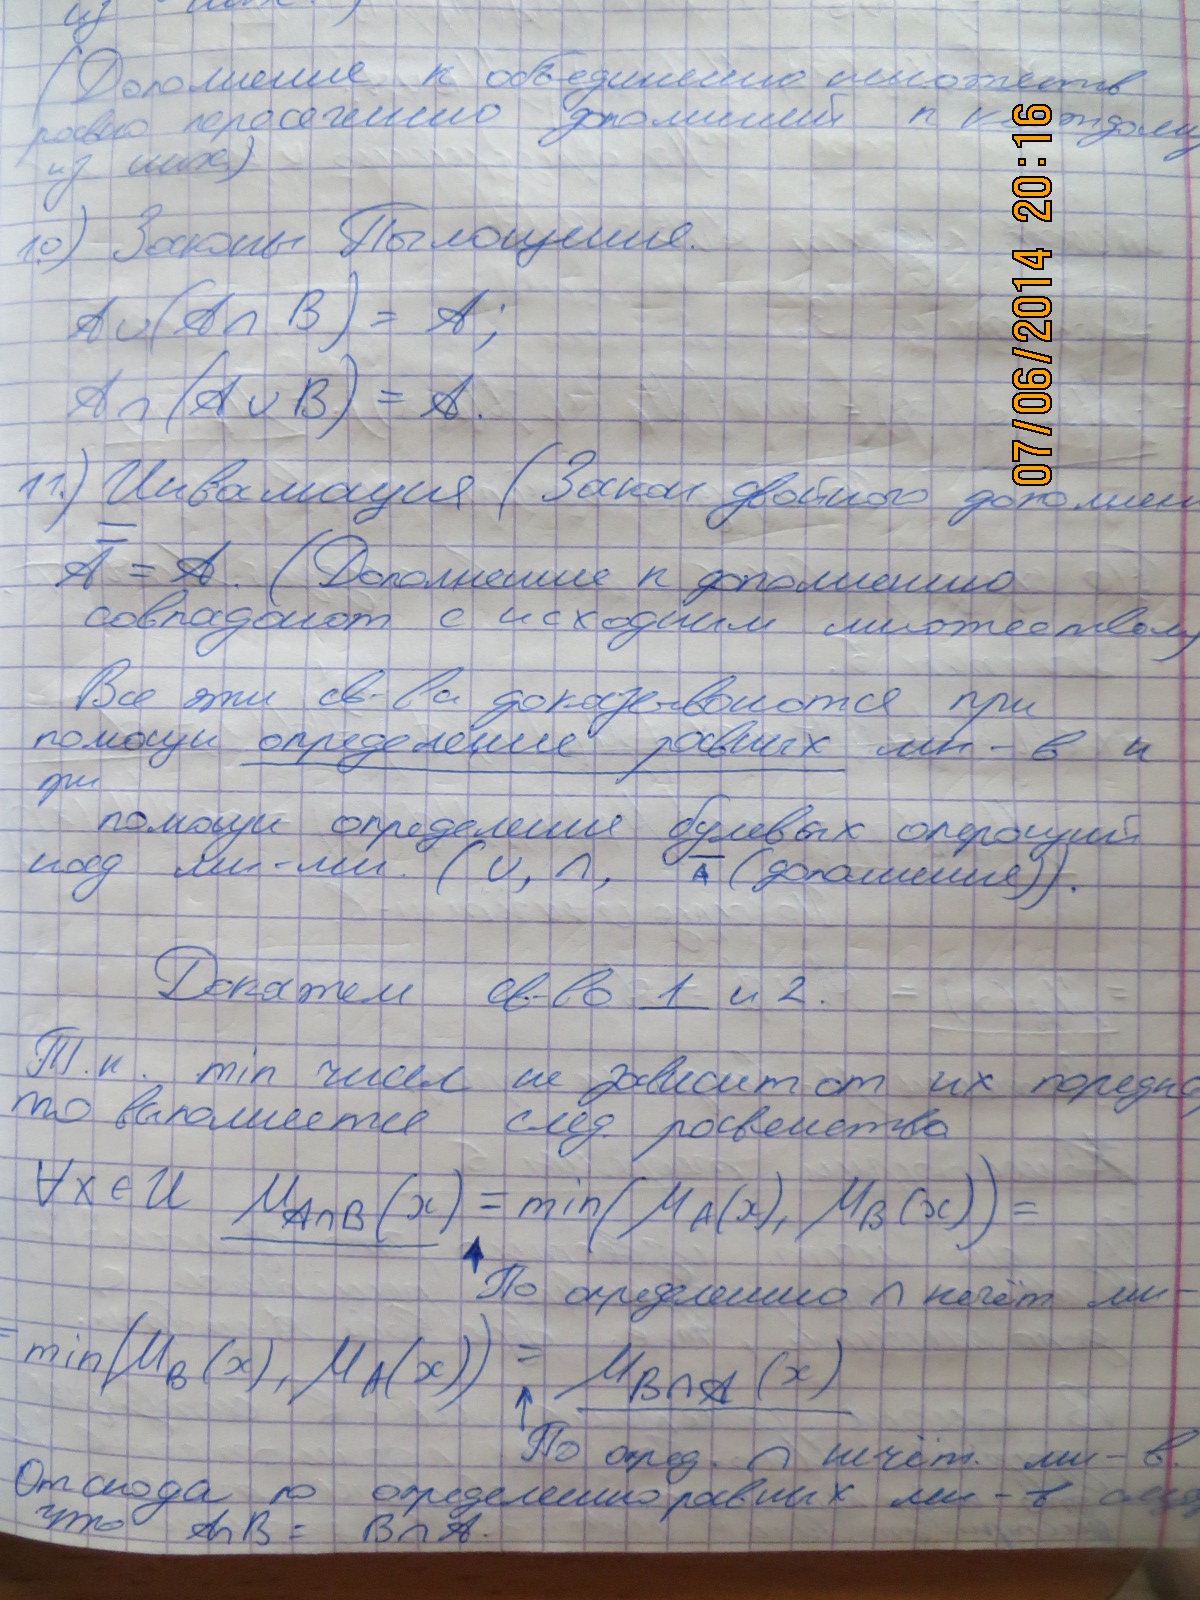 из них.)
(Дополнение к объединению множеств
равно пересечению дополнений к каждому
из них)
10.) Законы Поглощения.
A∪(A∩B) = A;
A∩(A∪B) = A.
11.) (Закон двойного дополнен
A̿ = A. (Дополнение к дополнению
совпадают с исходным множеством)
Все эти св-ва доказываются при
помощи определение равных мн-в и
при
помощи определения булевых операций
над мн-ми. (∪, ∩, A̅ (дополнение)).
Докажем св-во 1 и 2.
Т.к. min чисел не зависит от их порядка
то выполняется след. равенство
∀x∈U μ_{A∩B}(x) = min(μ_A(x), μ_B(x)) =
По определению ∩ нечёт мн-
= min(μ_B(x), μ_A(x)) = μ_{B∩A}(x)
По опред. ∩ нечёт. мн-в.
Отсюда по определению равных мн-в след
что A∩B = B∩A.
07/06/2014 20:16